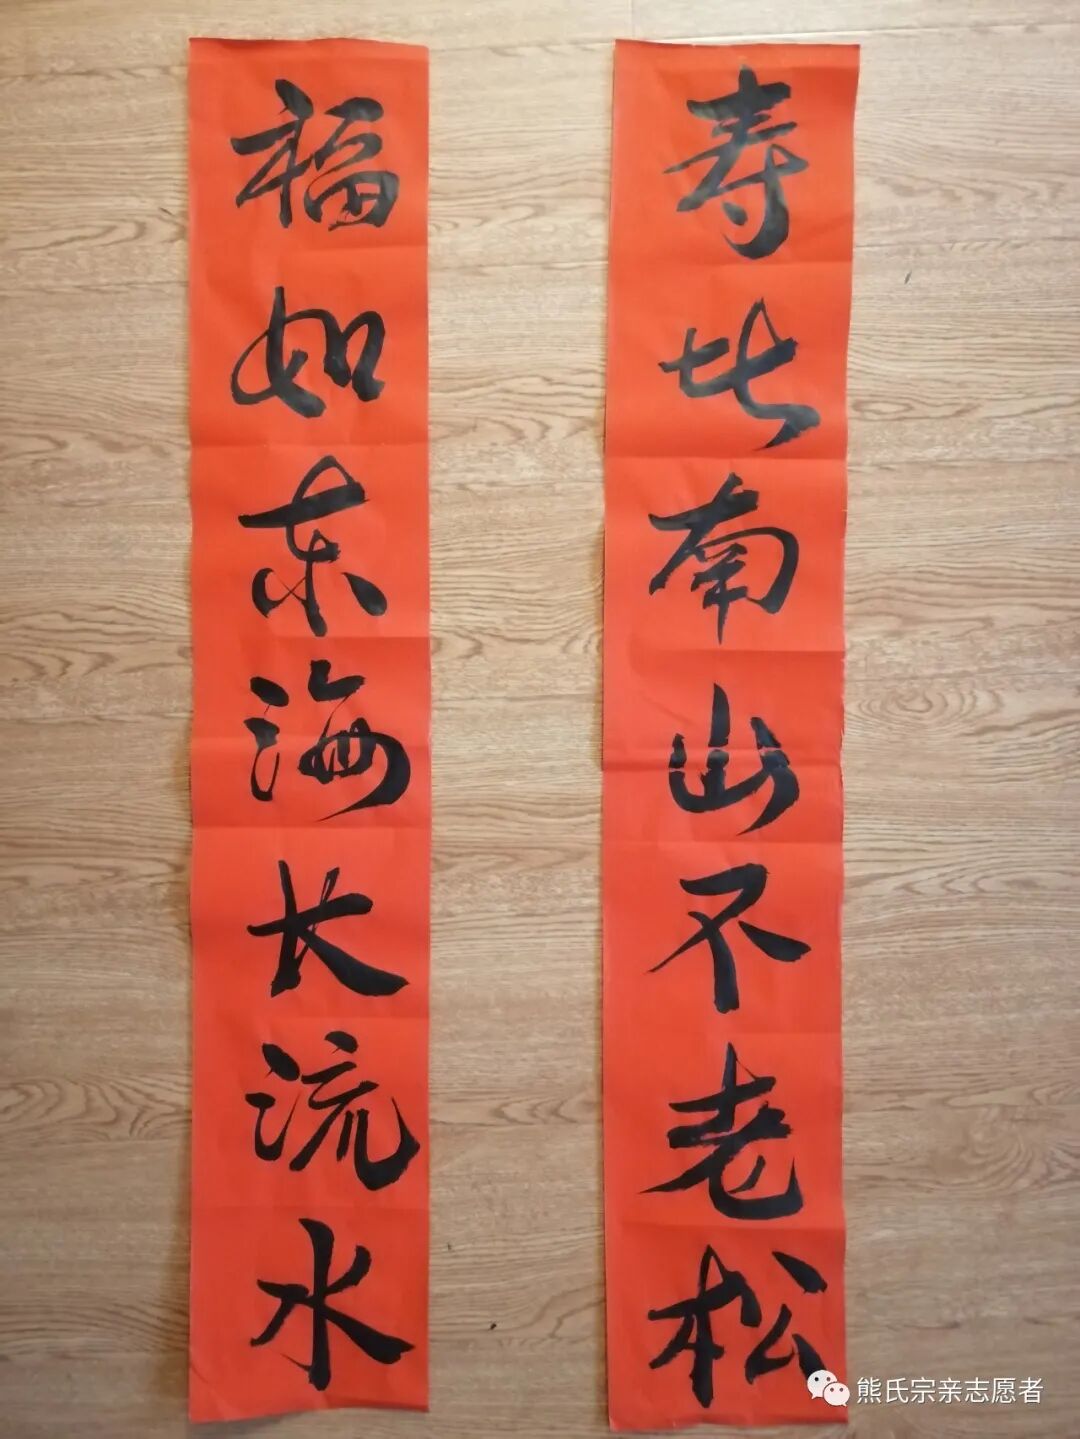 福如东海长流水
寿比南山不老松
熊氏宗亲志愿者